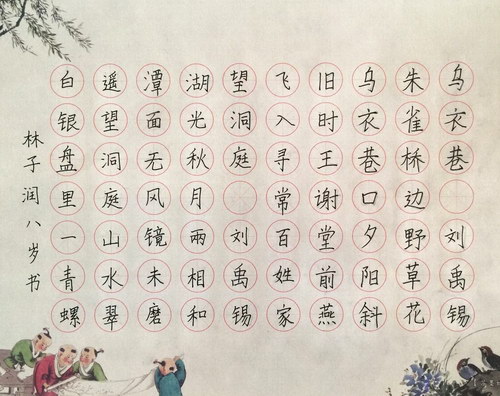 乌衣巷 刘禹锡
朱雀桥边野草花
乌衣巷口夕阳斜
旧时王谢堂前燕
飞入寻常百姓家
望洞庭 刘禹锡
湖光秋月兩相和
潭面无风镜未磨
遥望洞庭山水翠
白银盘里一青螺
林子润八岁书